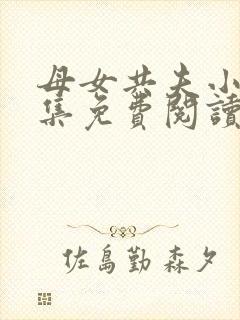 母女共夫小
集免費閱讀
佐島勤 森夕